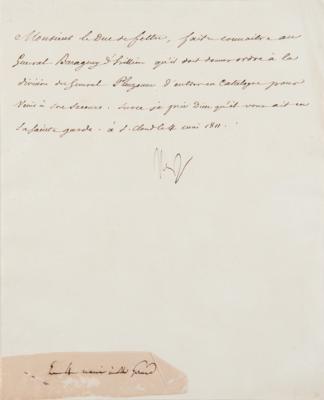 Monsieur le Duc de feltre, faite connaitre au
General Baraguey d'hillien qu'il doit donner ordre à la
division du General Plauzonne d'entrer en Catalogne pour
Venir à son secours. Surce je prie dieu qu'il vous ait en
sa sainte garde. à St Cloud le 4 mai 1811.
Le 4 mai